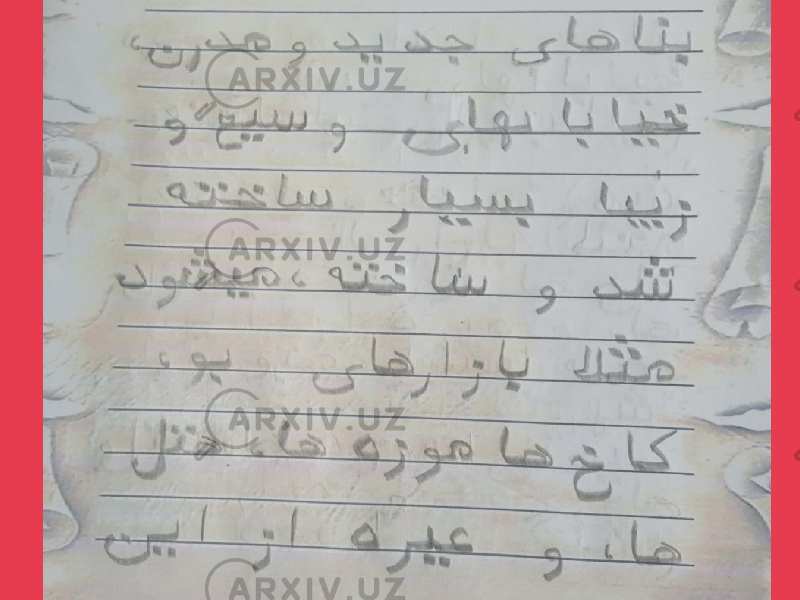 بناهای جدید و مدرن،
خیابانهایی وسیع و
زیبا بسیار ساخته
شد و ساخته، میشود
مثلا بازارهای دیو،
کاخ ها موزه ها، هتل
ها، و غیره از این
ARXIV.UZ
ARXIV.UZ
ARXIV.UZ
ARXIV.UZ